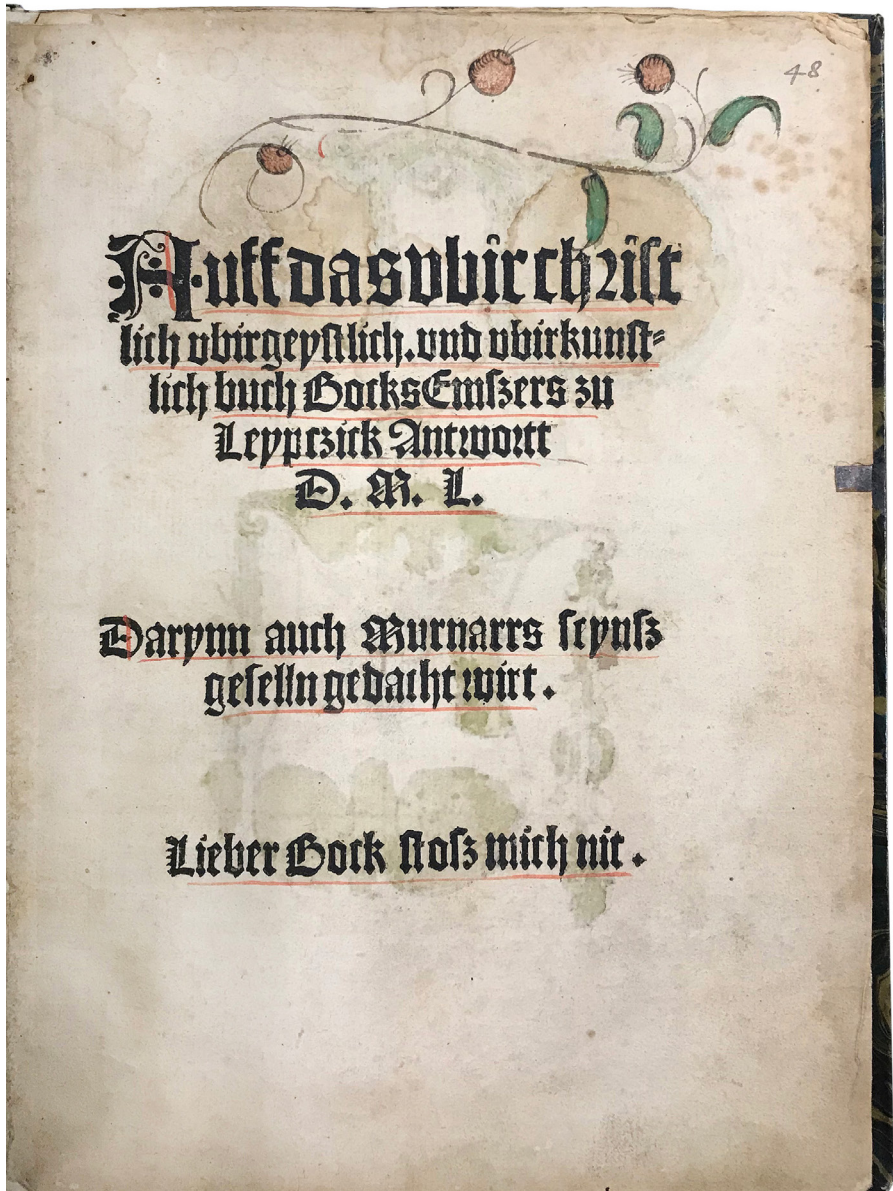 48
Auff das vbirchrist
lich vbirgeystlich. vnd vbirkunst⸗
lich buch Bocks Emszers zu
Leypczick Antwortt
D. M. L.
Darynn auch Murnarrs seynsz
geselln gedacht wirt.
Lieber Bock stosz mich nit.